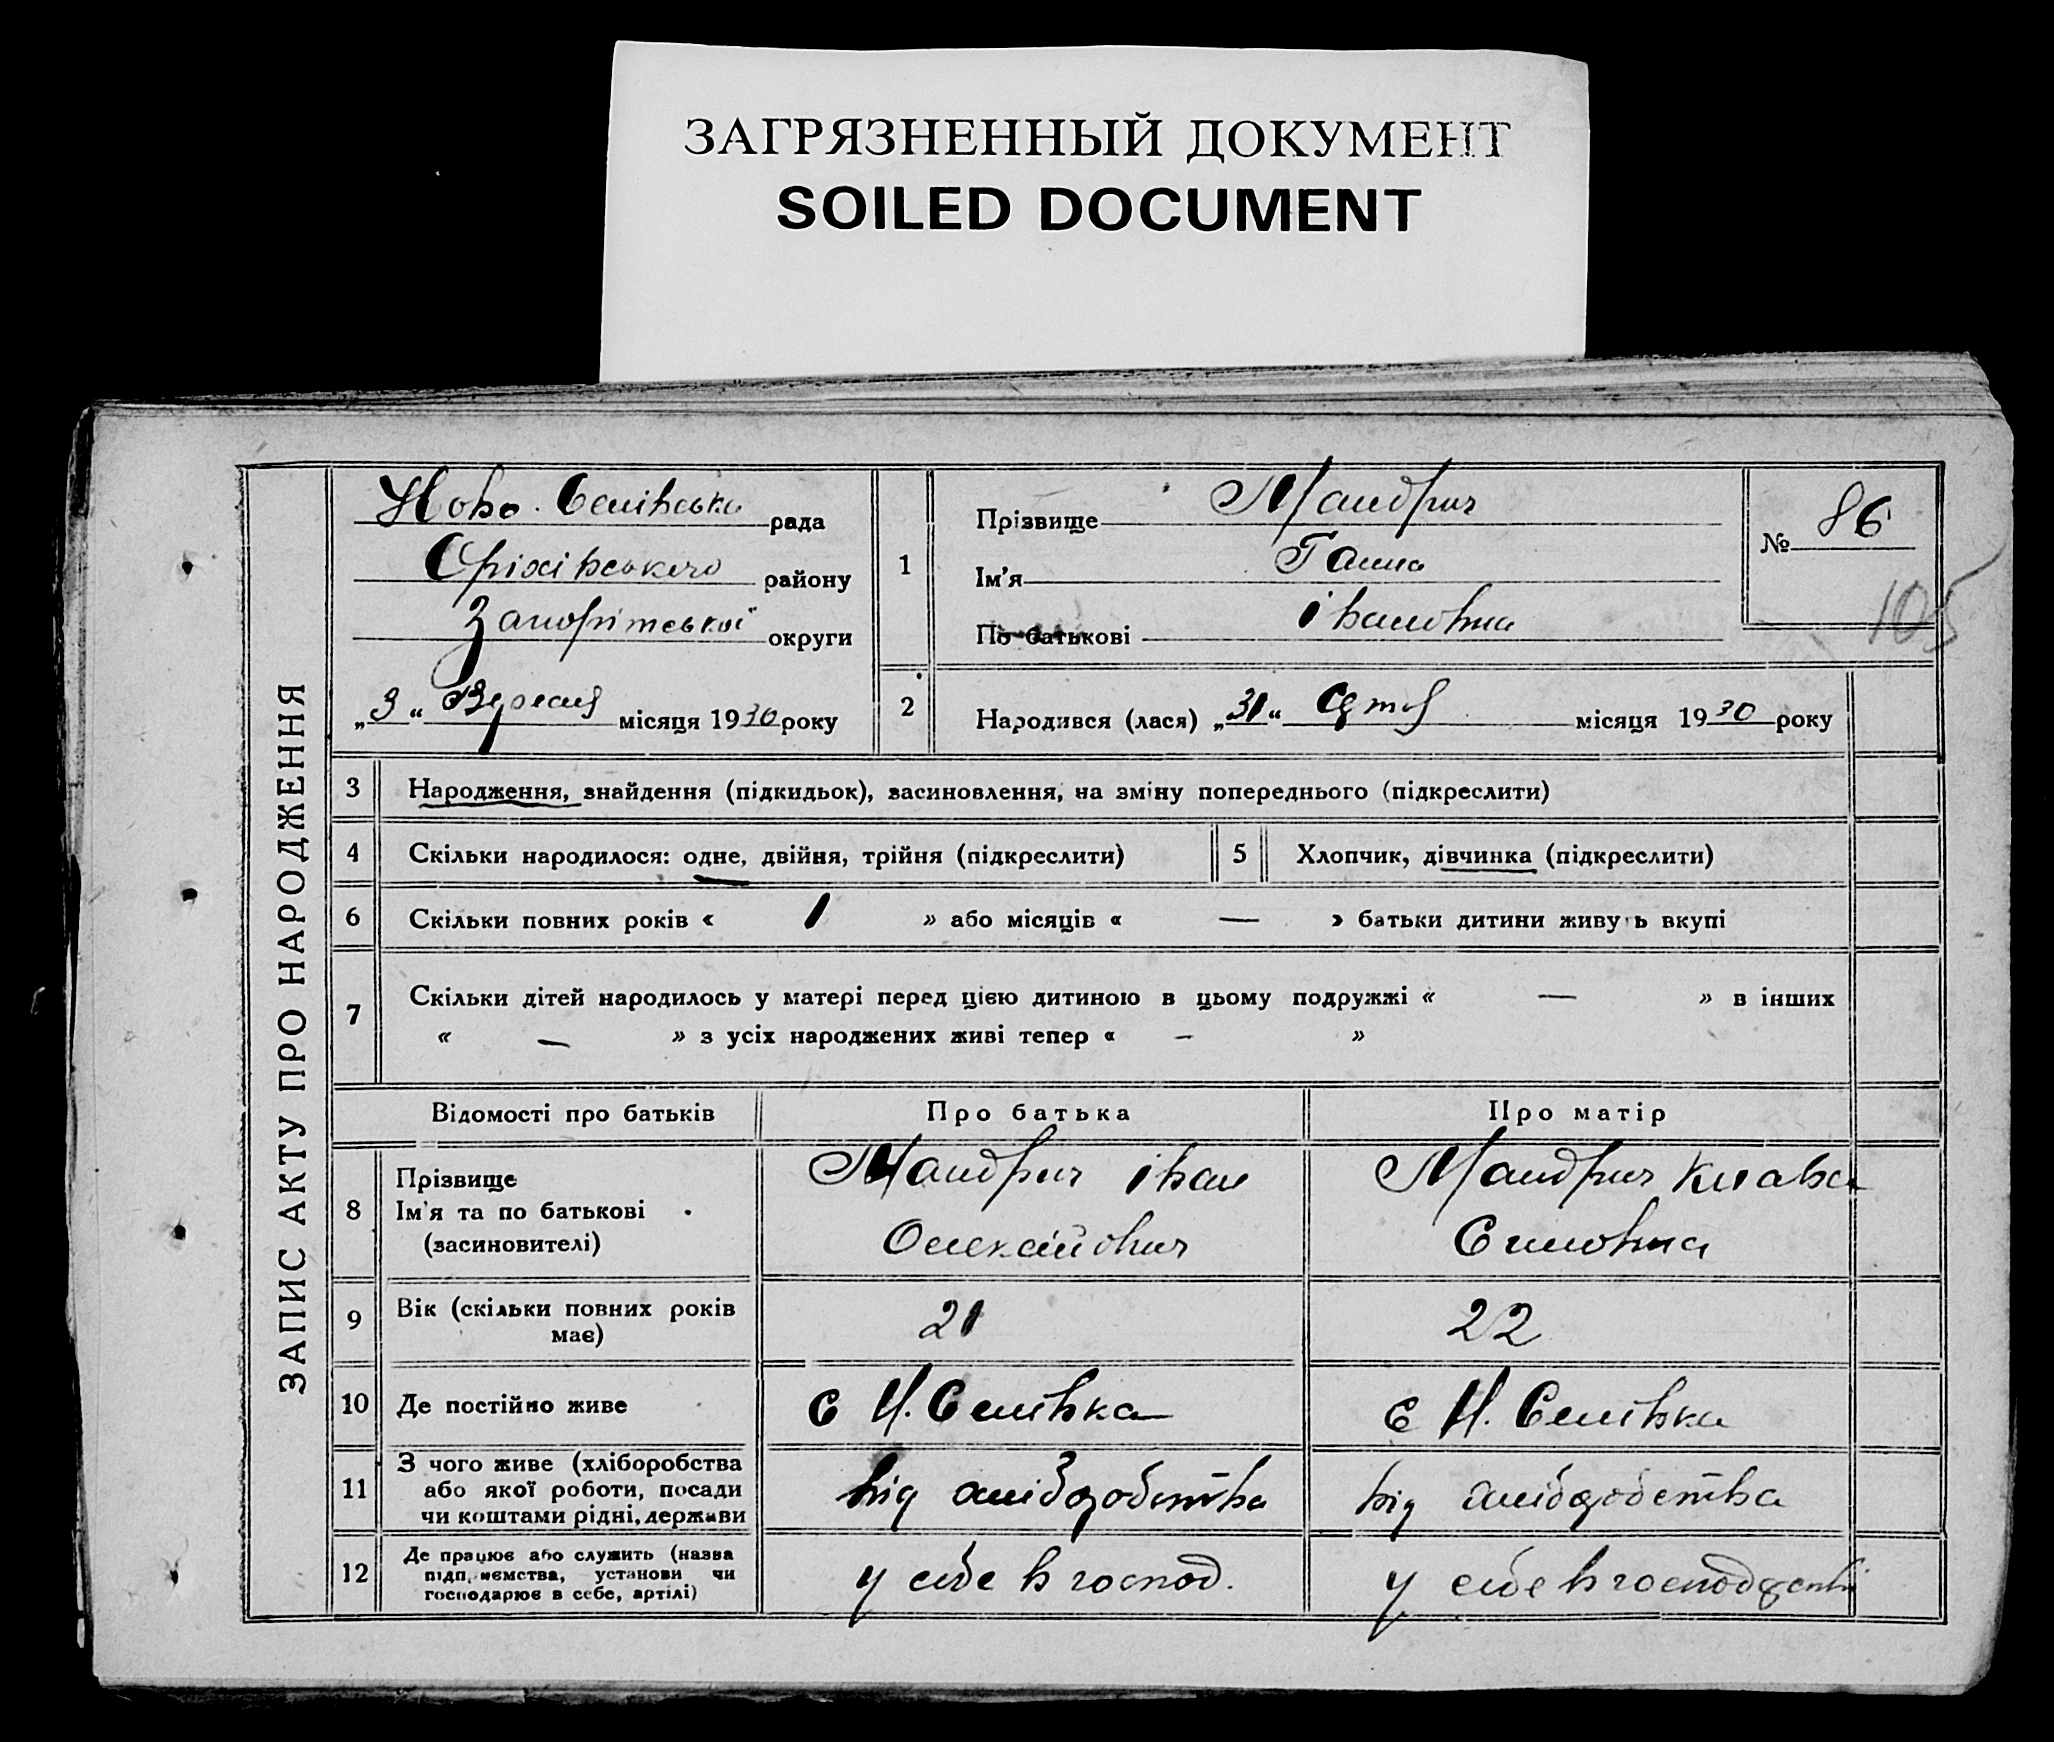 ЗАГРЯЗНЕННЫЙ ДОКУМЕНТ
SOILED DOCUMENT
ЗАПИС АКТУ ПРО НАРОДЖЕННЯ
Ново-Селівська рада
Оріхівського району
Запоріжської округи
„3“ Вересня місяця 1930 року
1
Прізвище Мандрич
Ім'я Ганна
По батькові Івановна
№ 86
105
2
Народився (лася) „31“ місяця 1930 року
3 Народження, знайдення (підкидьок), засиновлення, на зміну попереднього (підкреслити)
4 Скільки народилося: одне, двійня, трійня (підкреслити)
5 Хлопчик, дівчинка (підкреслити)
6 Скільки повних років « 1 » або місяців « — » батьки дитини живуть вкупі
7 Скільки дітей народилось у матері перед цією дитиною в цьому подружжі « — » в інших
« — » з усіх народжених живі тепер « - »
Відомості про батьків Про батька Про матір
8 Прізвище
Ім'я та по батькові
(засиновителі)
Мандрич Іван
Олексійович
Мандрич Клава
9 Вік (скільки повних років
має)
21
22
10 Де постійно живе
с Н. Селівка
с Н. Селівка
11 З чого живе (хліборобства
або якої роботи, посади
чи коштами рідні, держави
від хліборобства
від хліборобства
12 Де працює або служить (назва
підприємства, установи чи
господарює в себе, артілі)
у себе в господ.
у себе в господарстві